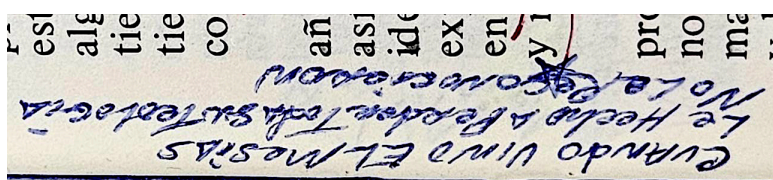 est
alg
tie
tie
co
añ
asi
ide
ex
en
y
pro
no
ma
CUANDO VINO EL MESÍAS
Le Hecho A Perder Toda Su Teología
No Le Reconocieron